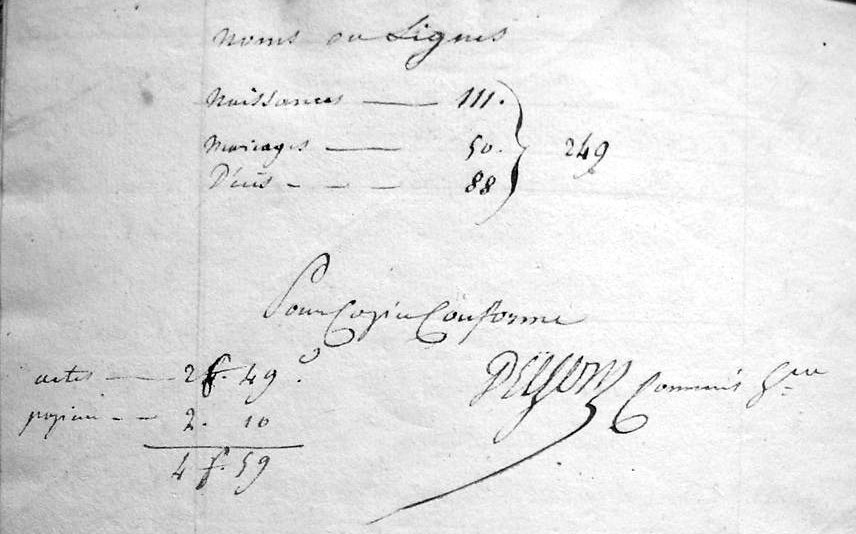 Noms ou Lignes
Naissances — 111.
Mariages — 50. } 249
Décès - - - 88
Pour Copie Conforme
actes — 2 f. 49 c
papier - - 2. 10 Commis G
4 f. 59